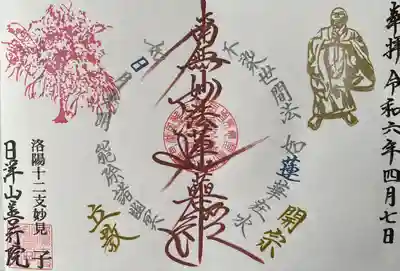 奉拝 令和六年四月七日
不染世間法 如蓮華在水
開宗
南無妙法蓮華経
如日月光明 能除諸幽冥
立教
洛陽十二支妙見 子
日洋山善行院